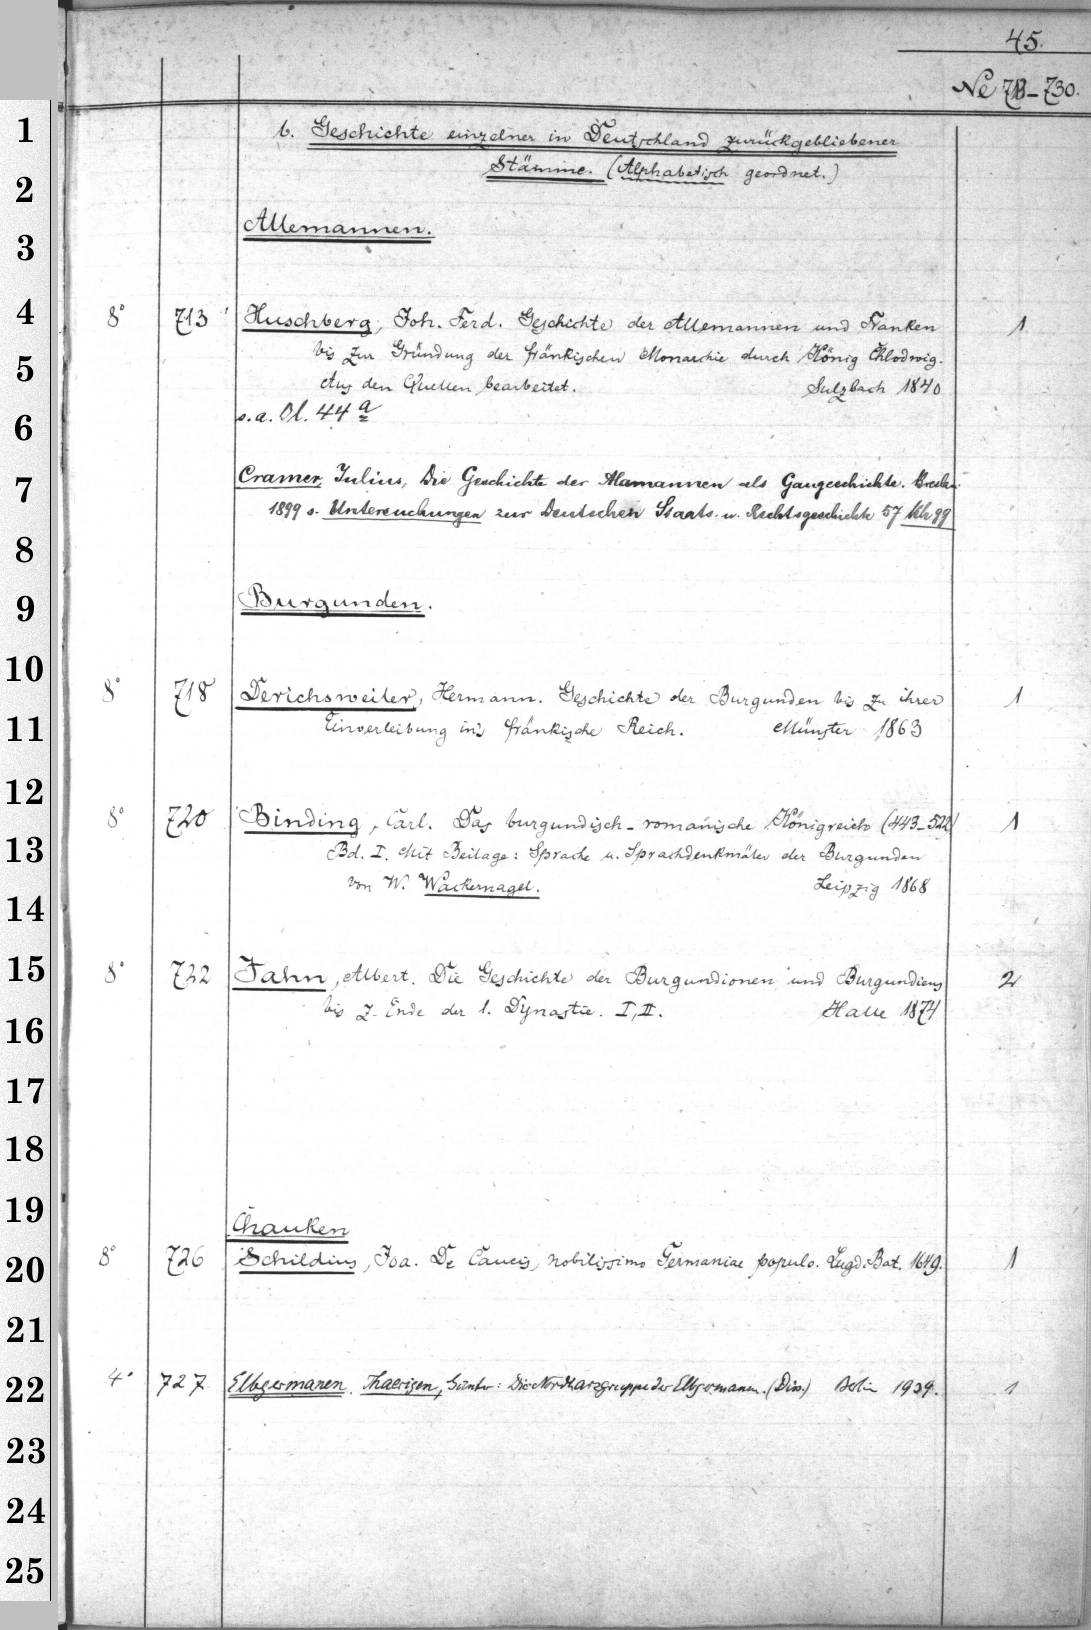 45.
Ne 713-730.
1 b. Geschichte einzelner in Deutschland zurückgebliebener
2 Stämme. (Alphabetisch geordnet.)
3 Allemannen.
4 8° 713 Huschberg, Joh. Ferd. Geschichte der Allemannen und Franken 1
5 bis zur Gründung der fränkischen Monarchie durch König Chlodwig.
Aus den Quellen bearbeitet. Sulzbach 1840
6 s. a. Ol. 44 a
7 Cramer, Julius, Die Geschichte der Alamannen als Gaugeschichte. Breslau
1899 s. Untersuchungen zur Deutschen Staats- u. Rechtsgeschichte 57 Kh 99
8
9 Burgunden.
10 8° 718 Derichsweiler, Hermann. Geschichte der Burgunden bis zu ihrer 1
11 Einverleibung in's fränkische Reich. Münster 1863
12 8° 720 Binding, Carl. Das burgundisch-romanische Königreich (443-532) 1
13 Bd. I. Mit Beilage: Sprache u. Sprachdenkmäler der Burgunden
14 von W. Wackernagel. Leipzig 1868
15 8° 722 Jahn, Albert. Die Geschichte der Burgundionen und Burgundiens 2
16 bis z. Ende der 1. Dynastie. I, II. Halle 1874
17
18
19 Chauken
20 8° 726 Schildius, Joa. De Caucis, nobilissimo Germaniae populo. Lugd. Bat. 1649. 1
21
22 4° 727 Elbgermanen. Thaerigen, Günter: Die Nordharzgruppe der Elbgermanen. (Diss.) Berlin 1939. 1
23
24
25